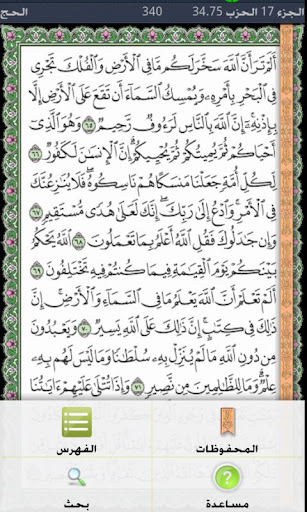 الجزء 17 الحزب 34.75 340 الحج
أَلَمْ تَرَ أَنَّ ٱللَّهَ سَخَّرَ لَكُم مَّا فِى ٱلْأَرْضِ وَٱلْفُلْكَ تَجْرِى
فِى ٱلْبَحْرِ بِأَمْرِهِۦ وَيُمْسِكُ ٱلسَّمَآءَ أَن تَقَعَ عَلَى ٱلْأَرْضِ إِلَّا
بِإِذْنِهِۦٓ إِنَّ ٱللَّهَ بِٱلنَّاسِ لَرَءُوفٌ رَّحِيمٌ ٦٥ وَهُوَ ٱلَّذِىٓ
أَحْيَاكُمْ ثُمَّ يُمِيتُكُمْ ثُمَّ يُحْيِيكُمْ إِنَّ ٱلْإِنسَٰنَ لَكَفُورٌ ٦٦
لِّكُلِّ أُمَّةٍ جَعَلْنَا مَنسَكًا هُمْ نَاسِكُوهُ فَلَا يُنَٰزِعُنَّكَ
فِى ٱلْأَمْرِ وَٱدْعُ إِلَىٰ رَبِّكَ إِنَّكَ لَعَلَىٰ هُدًى مُّسْتَقِيمٍ ٦٧
وَإِن جَٰدَلُوكَ فَقُلِ ٱللَّهُ أَعْلَمُ بِمَا تَعْمَلُونَ ٦٨ ٱللَّهُ يَحْكُمُ
بَيْنَكُمْ يَوْمَ ٱلْقِيَٰمَةِ فِيمَا كُنتُمْ فِيهِ تَخْتَلِفُونَ ٦٩
أَلَمْ تَعْلَمْ أَنَّ ٱللَّهَ يَعْلَمُ مَا فِى ٱلسَّمَآءِ وَٱلْأَرْضِ إِنَّ
ذَٰلِكَ فِى كِتَٰبٍ إِنَّ ذَٰلِكَ عَلَى ٱللَّهِ يَسِيرٌ ٧٠ وَيَعْبُدُونَ
مِن دُونِ ٱللَّهِ مَا لَمْ يُنَزِّلْ بِهِۦ سُلْطَٰنًا وَمَا لَيْسَ لَهُم بِهِۦ
عِلْمٌ وَمَا لِلظَّٰلِمِينَ مِن نَّصِيرٍ ٧١ وَإِذَا تُتْلَىٰ عَلَيْهِمْ ءَايَٰتُنَا
المحفوظات الفهرس
مساعدة بحث